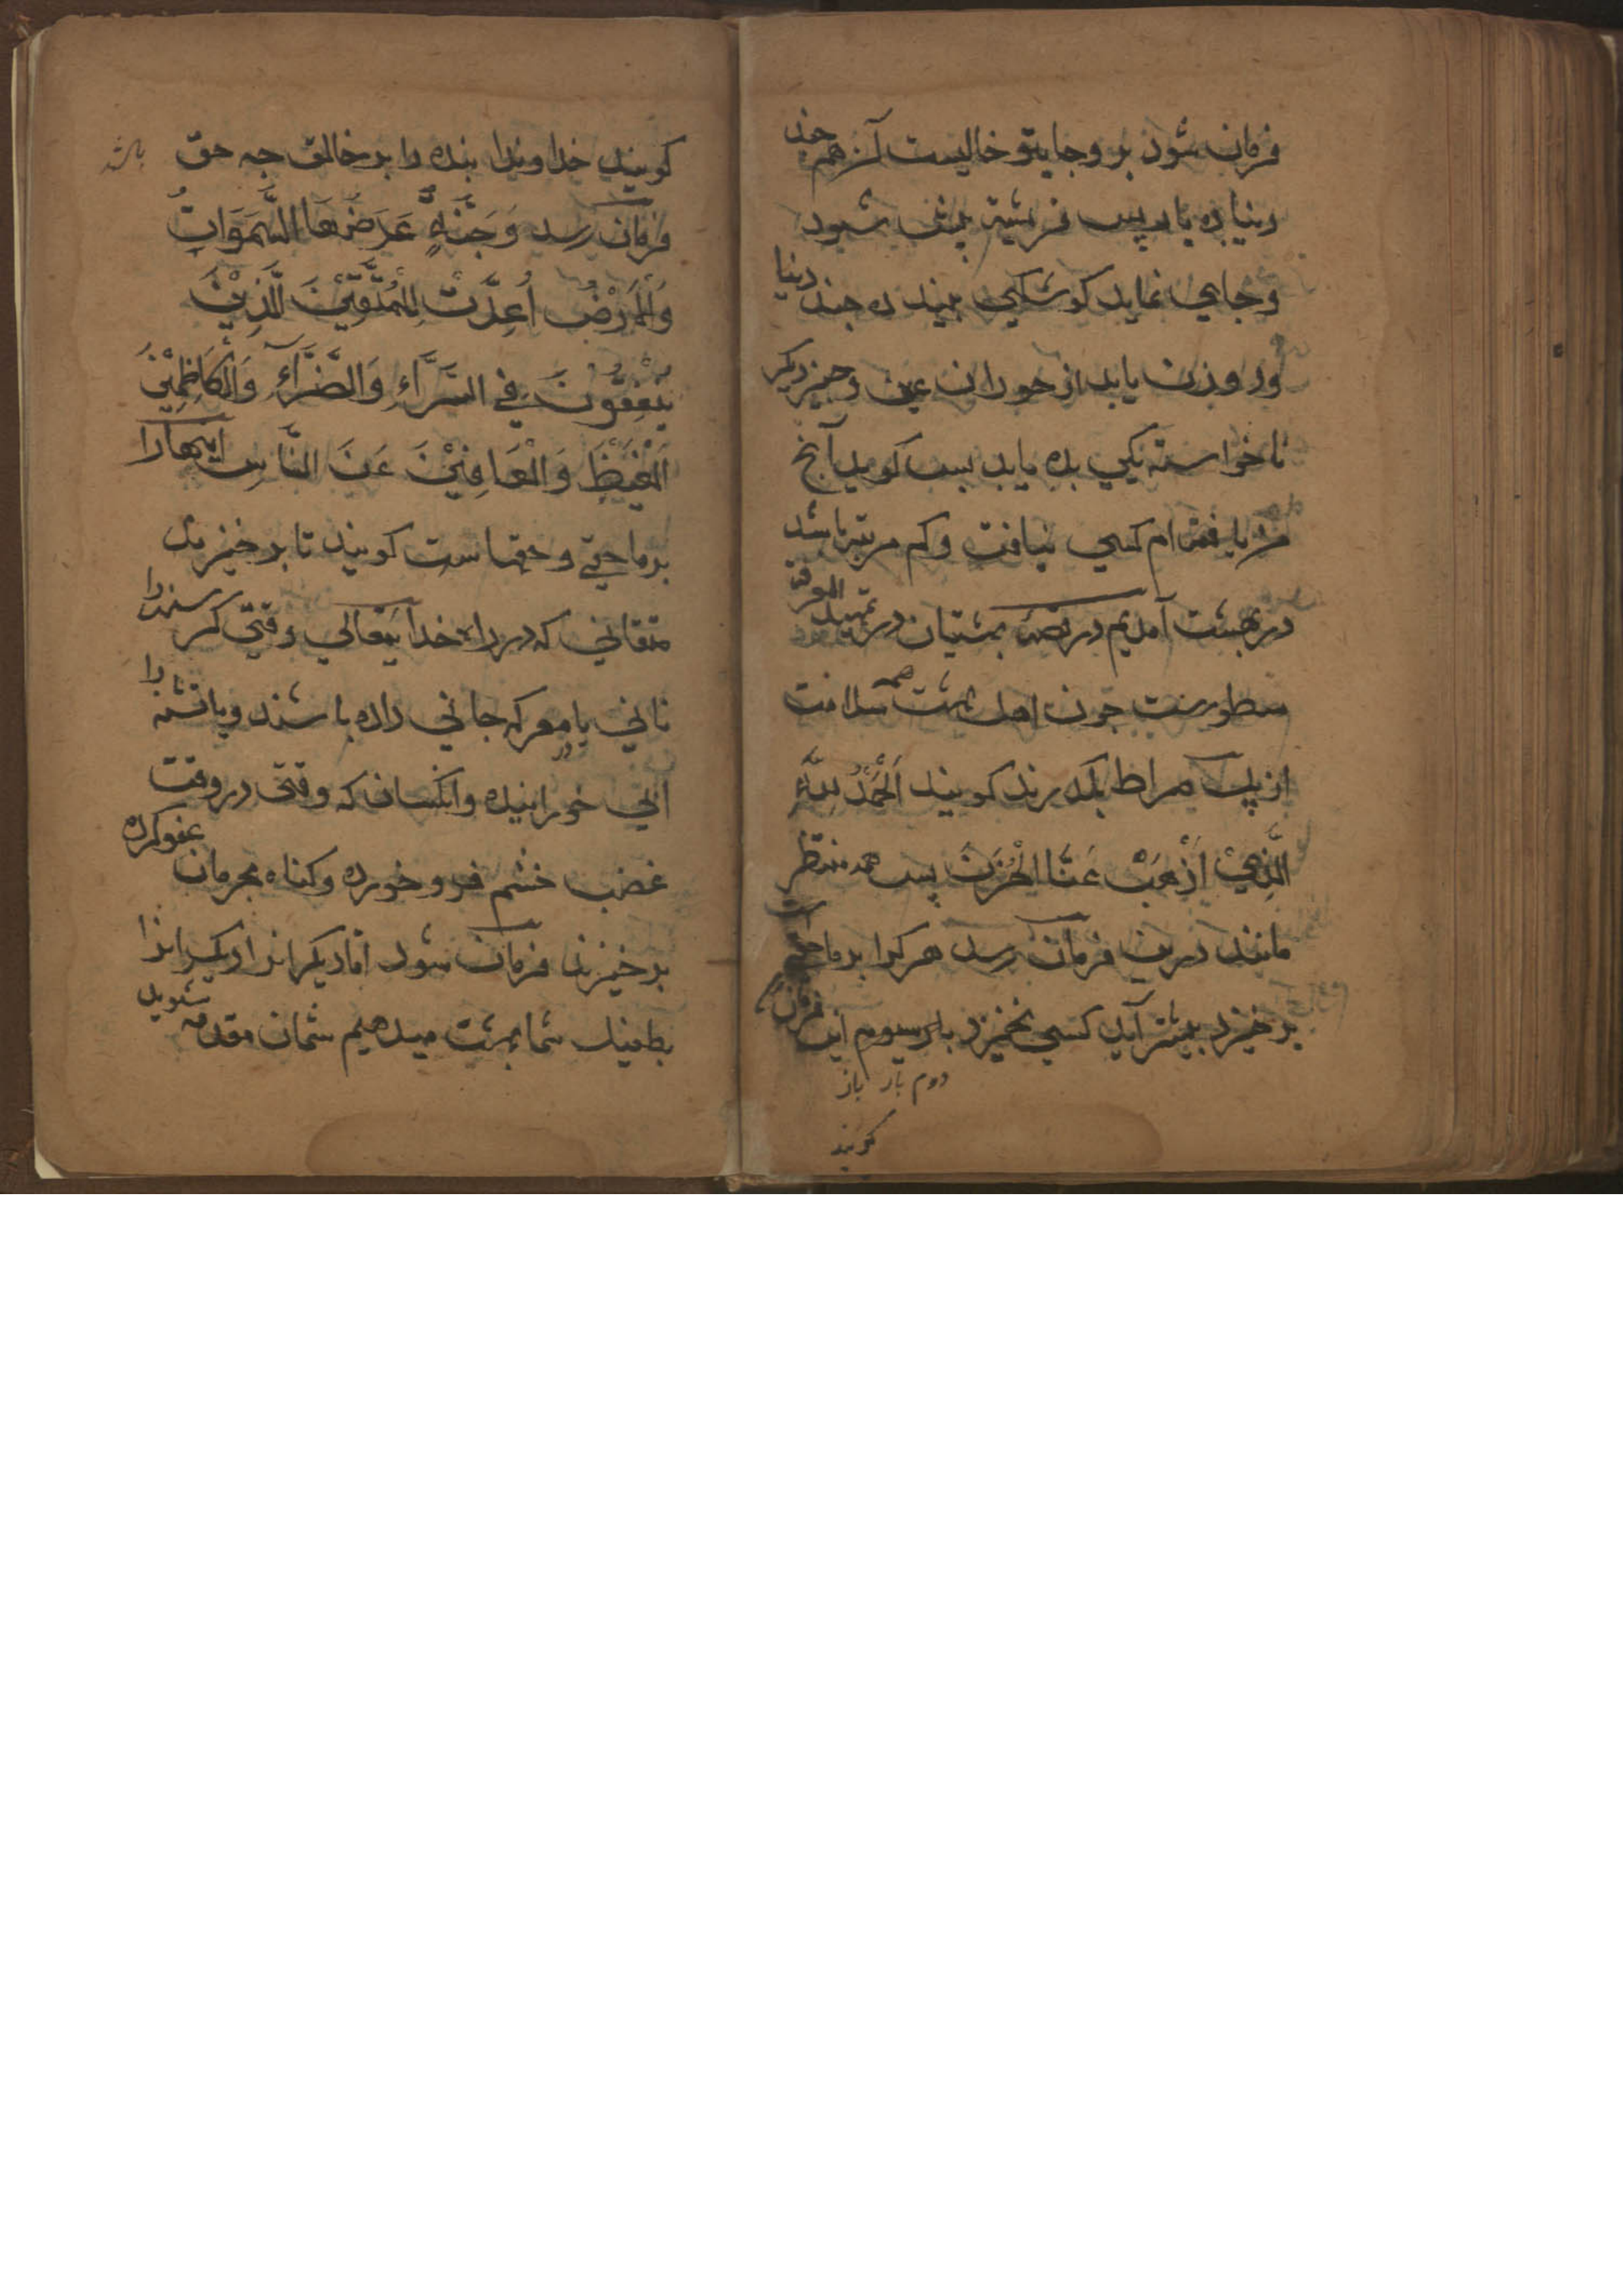 فرمان شود برو جایتو خالیست آنرا هم چند
دنیا ده بار پس فرشته پیش شود
و جایی نماید کوشکی بیند ده چند دنیا
و دو زن یابد از حوران عین و چیز دیگر
ناخواسته یکی بده یابد پس کوید آنج
من یافته ام کسی نیافت و کم مرتبه باشد
در بهشت آمدیم در قصه بهشتیان در تمهید المعرفة
مسطورست چون اهل بهشت همه سلامت
از پل صراط بگذرند کویند اَلْحَمْدُ لِلّٰهِ
الَّذِيْ اَذْهَبَ عَنَّا الْحُزْنَ پس همه منتظر
مانند درین فرمان رسد هر کرا بر ما حقی است
بر خیزد پیشتر آید کسی نخیزد بار سیوم این فرمان
دوم بار باز
کویند
کویند خداوندا بنده را بر خالق چه حق باشد
فرمان رسد وَجَنَّةٍ عَرْضُهَا السَّمَوَاتُ
وَالْاَرْضُ اُعِدَّتْ لِلْمُتَّقِيْنَ الَّذِيْنَ
يُنْفِقُوْنَ فِي السَّرَّاءِ وَالضَّرَّآءِ وَالْكَاظِمِيْنَ
الْغَيْظَ وَالْعَافِيْنَ عَنَ النَّاسِ اینهارا
بر ما حقی و حقهاست کویند تا بر خیزید
متقانی که در راه خدایتعالی وقتی کرسنه را
نانی یا معرکه جانی داده باشند و یا تشنه را
آبی خورانیده و آنکسان که وقتی در وقت
غضب خشم فرو خورده و کناه مجرمان عفو کرده
بر خیزند فرمان شود اما دیکرانرا دیکرانرا
بطفیل شما بهشت میدهیم شمان مقدمه شوید